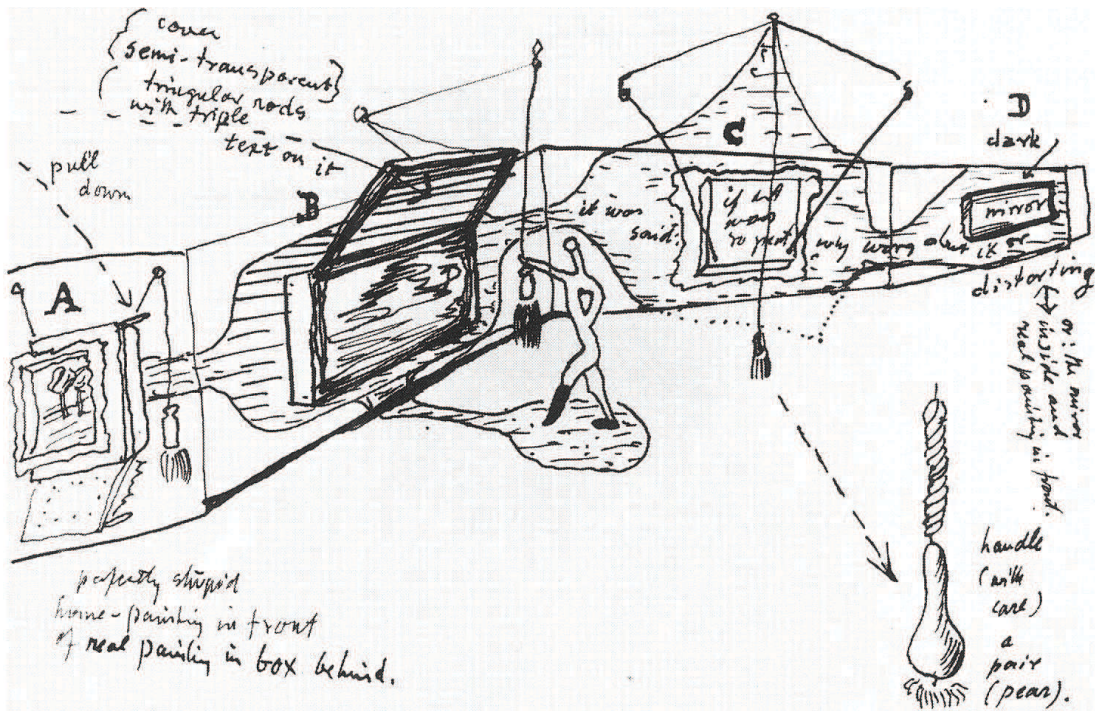 cover
semi-transparent
triangular rods
with triple
text on it
pull
down
A
B
C
D
dark
it was
said:
if not
was
why worry about it
mirror
or
distorting
or: the mirror
inside and
real painting in front.
perfectly stupid
home-painting in front
of real painting in box behind.
handle
(with
care)
a
pair
(pear).